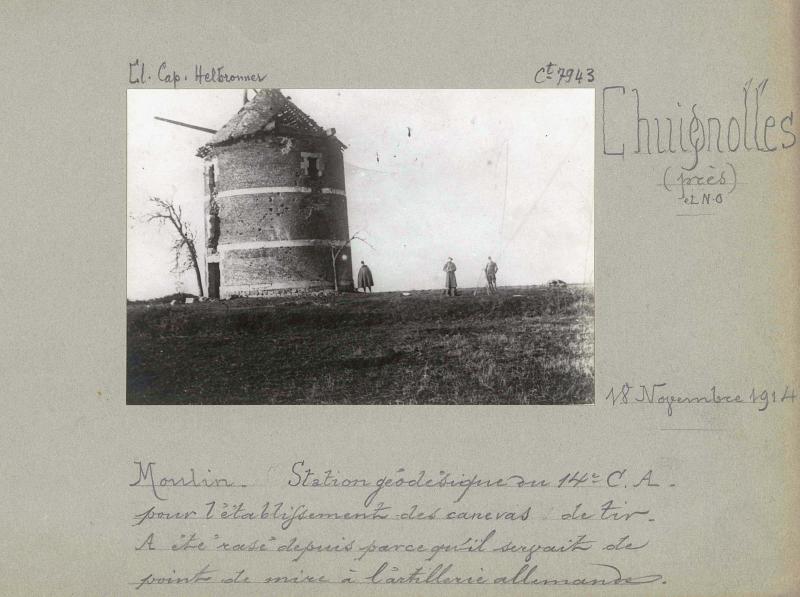 Cl. Cap. Helbronner
Ct 7943
Chuignolles
(près)
et N.O
18 Novembre 1914
Moulin. Station géodésique du 14e C. A.
pour l'établissement des canevas de tir.
A été rasé depuis parce qu'il servait de
point de mire à l'artillerie allemande.